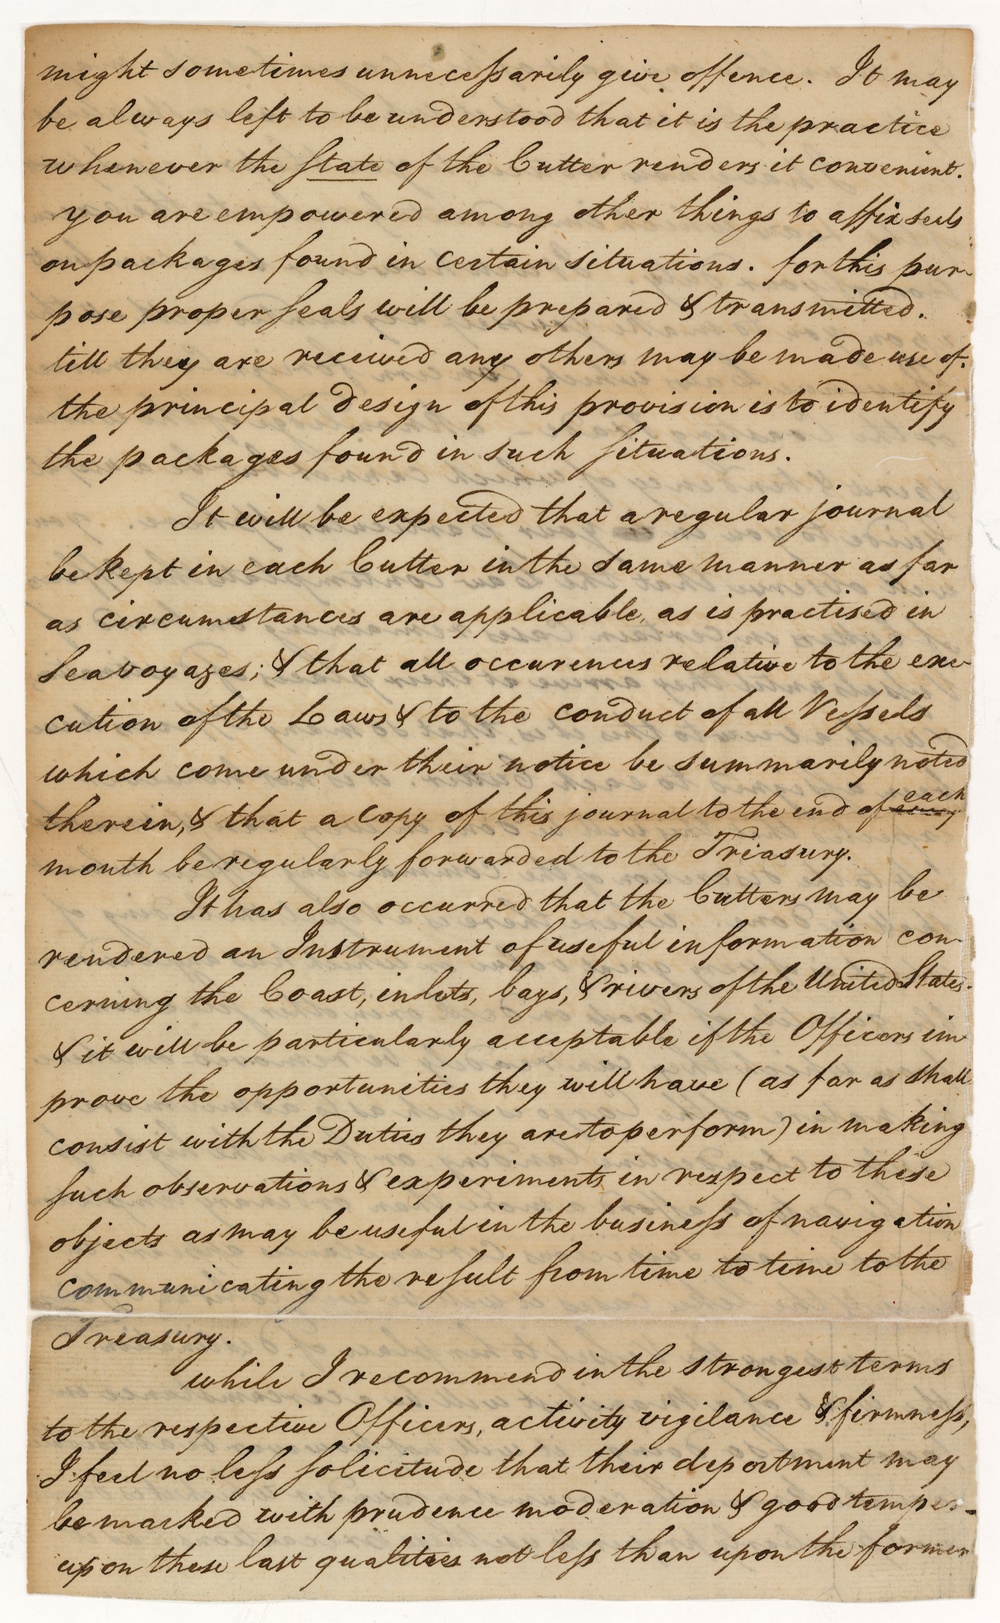 might sometimes unnecessarily give offence. It may
be always left to be understood that it is the practice
whenever the State of the Cutter renders it convenient.
you are empowered among other things to affix seals
on packages found in certain situations. for this pur-
pose proper seals will be prepared & transmitted.
till they are received any others may be made use of.
the principal design of this provision is to identify
the packages found in such situations.
It will be expected that a regular journal
be kept in each Cutter in the same manner as far
as circumstances are applicable, as is practised in
Sea voyages; & that all occurences relative to the exe-
cution of the Laws & to the conduct of all Vessels
which come under their notice be summarily noted
each
therein, & that a Copy of this journal to the end of every
month be regularly forwarded to the Treasury.
It has also occurred that the Cutters may be
rendered an Instrument of useful information con-
cerning the Coast, inlets, bays, & rivers of the United States.
& it will be particularly acceptable if the Officers im-
prove the opportunities they will have (as far as shall
consist with the Duties they are to perform) in making
such observations & experiments in respect to these
objects as may be useful in the business of navigation
communicating the result from time to time to the
Treasury.
while I recommend in the strongest terms
to the respective Officers, activity vigilance & firmness,
I feel no less solicitude that their deportment may
be marked with prudence moderation & good temper-
upon these last qualities not less than upon the former